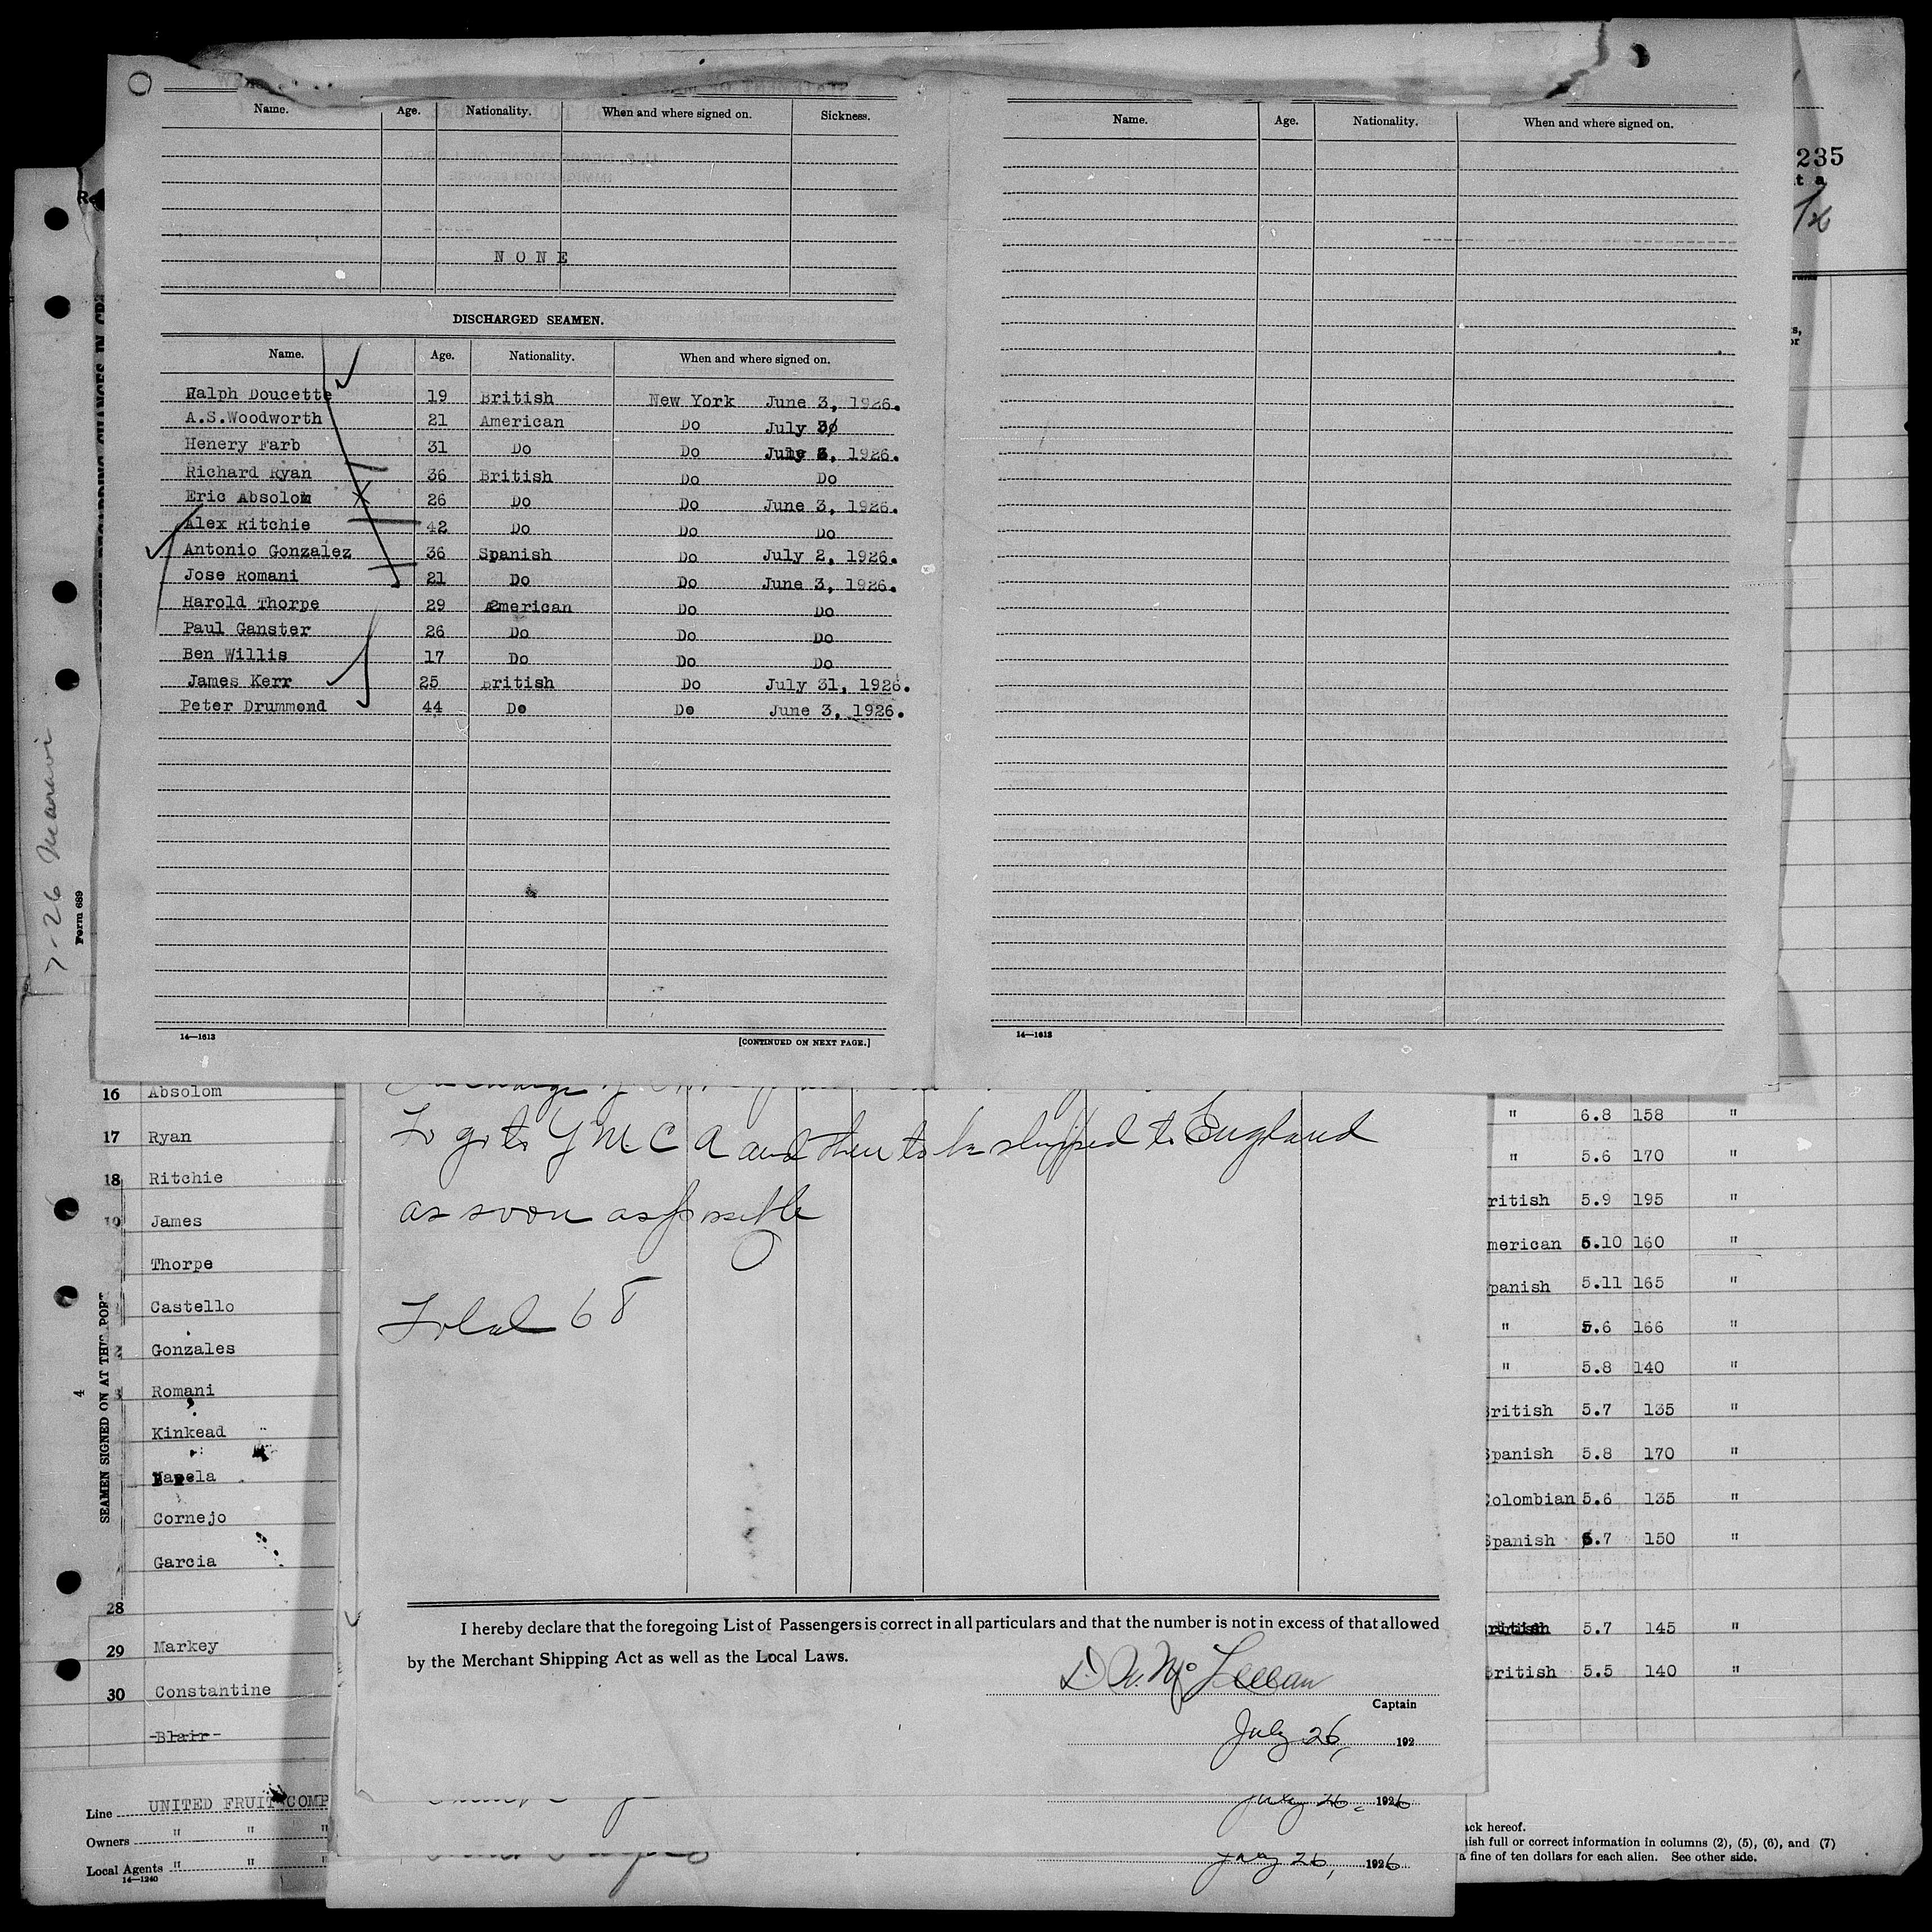 Name. Age. Nationality. When and where signed on. Sickness.
NONE
DISCHARGED SEAMEN.
Name. Age. Nationality. When and where signed on.
Ralph Doucette 19 British New York June 3, 1926.
A.S.Woodworth 21 American Do July
Henery Farb 31 Do Do 1926.
Richard Ryan 36 British Do Do
Eric Absolom 26 Do Do June 3, 1926.
Alex Ritchie 42 Do Do Do
Antonio Gonzalez 36 Spanish Do July 2, 1926.
Jose Romani 21 Do Do June 3, 1926.
Harold Thorpe 29 American Do Do
Paul Ganster 26 Do Do Do
Ben Willis 17 Do Do Do
James Kerr 25 British Do July 31, 1926.
Peter Drummond 44 Do Do June 3, 1926.
14—1613 [CONTINUED ON NEXT PAGE.]
Name. Age. Nationality. When and where signed on.
14—1613
235
t a
7-26 Maravi
Form 689
4
SEAMEN SIGNED ON AT THIS PORT
16 Absolom
17 Ryan
18 Ritchie
19 James
Thorpe
Castello
2 Gonzales
Romani
Kinkead
Cornejo
Garcia
28
29 Markey
30 Constantine
Blair
Line UNITED FRUIT COMP
Owners " " "
Local Agents " " "
14—1240
To go to Y M C A and then to be shipped to England
as soon as possible
Total 68
I hereby declare that the foregoing List of Passengers is correct in all particulars and that the number is not in excess of that allowed
by the Merchant Shipping Act as well as the Local Laws.
Captain
July 26, 192
July 26, 1926
July 26, 1926
" 6.8 158 "
" 5.6 170 "
ritish 5.9 195 "
merican 5.10 160 "
panish 5.11 165 "
" 5.6 166 "
" 5.8 140 "
British 5.7 135 "
Spanish 5.8 170 "
Colombian 5.6 135 "
Spanish 5.7 150 "
5.7 145 "
British 5.5 140 "
ack hereof.
ish full or correct information in columns (2), (5), (6), and (7)
a fine of ten dollars for each alien. See other side.